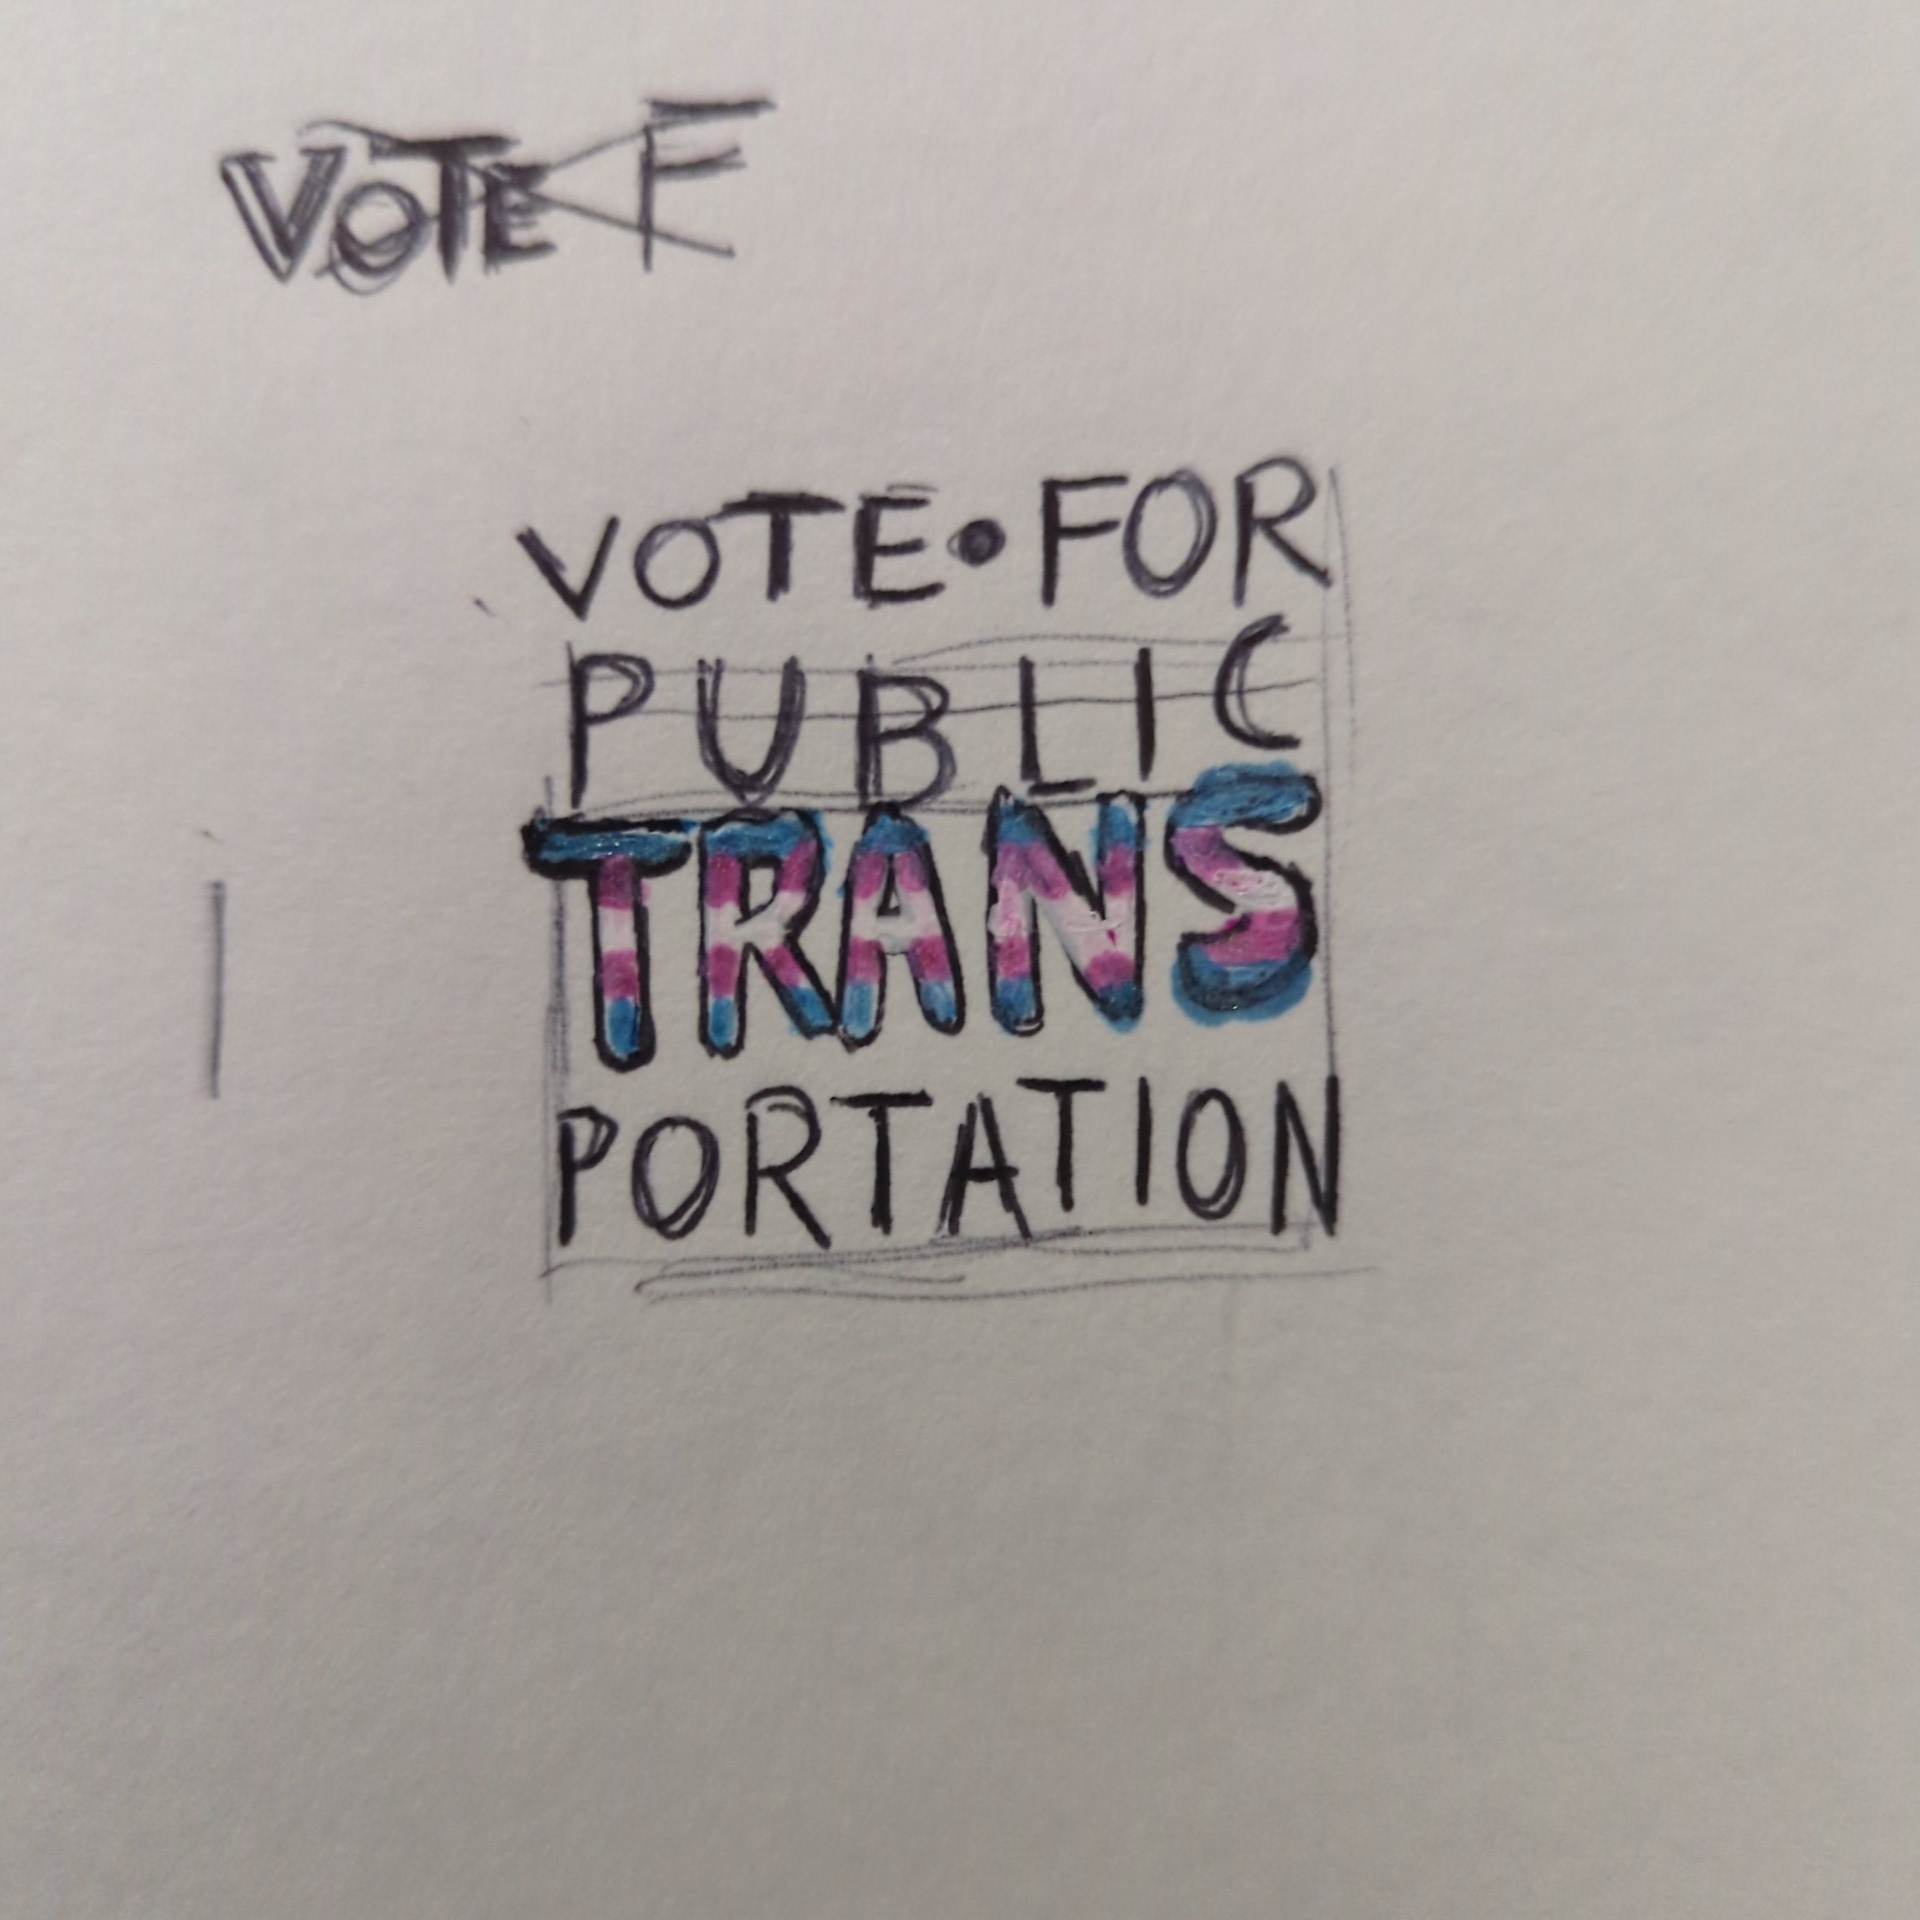 VOTE F
VOTE•FOR
PUBLIC
TRANS
PORTATION